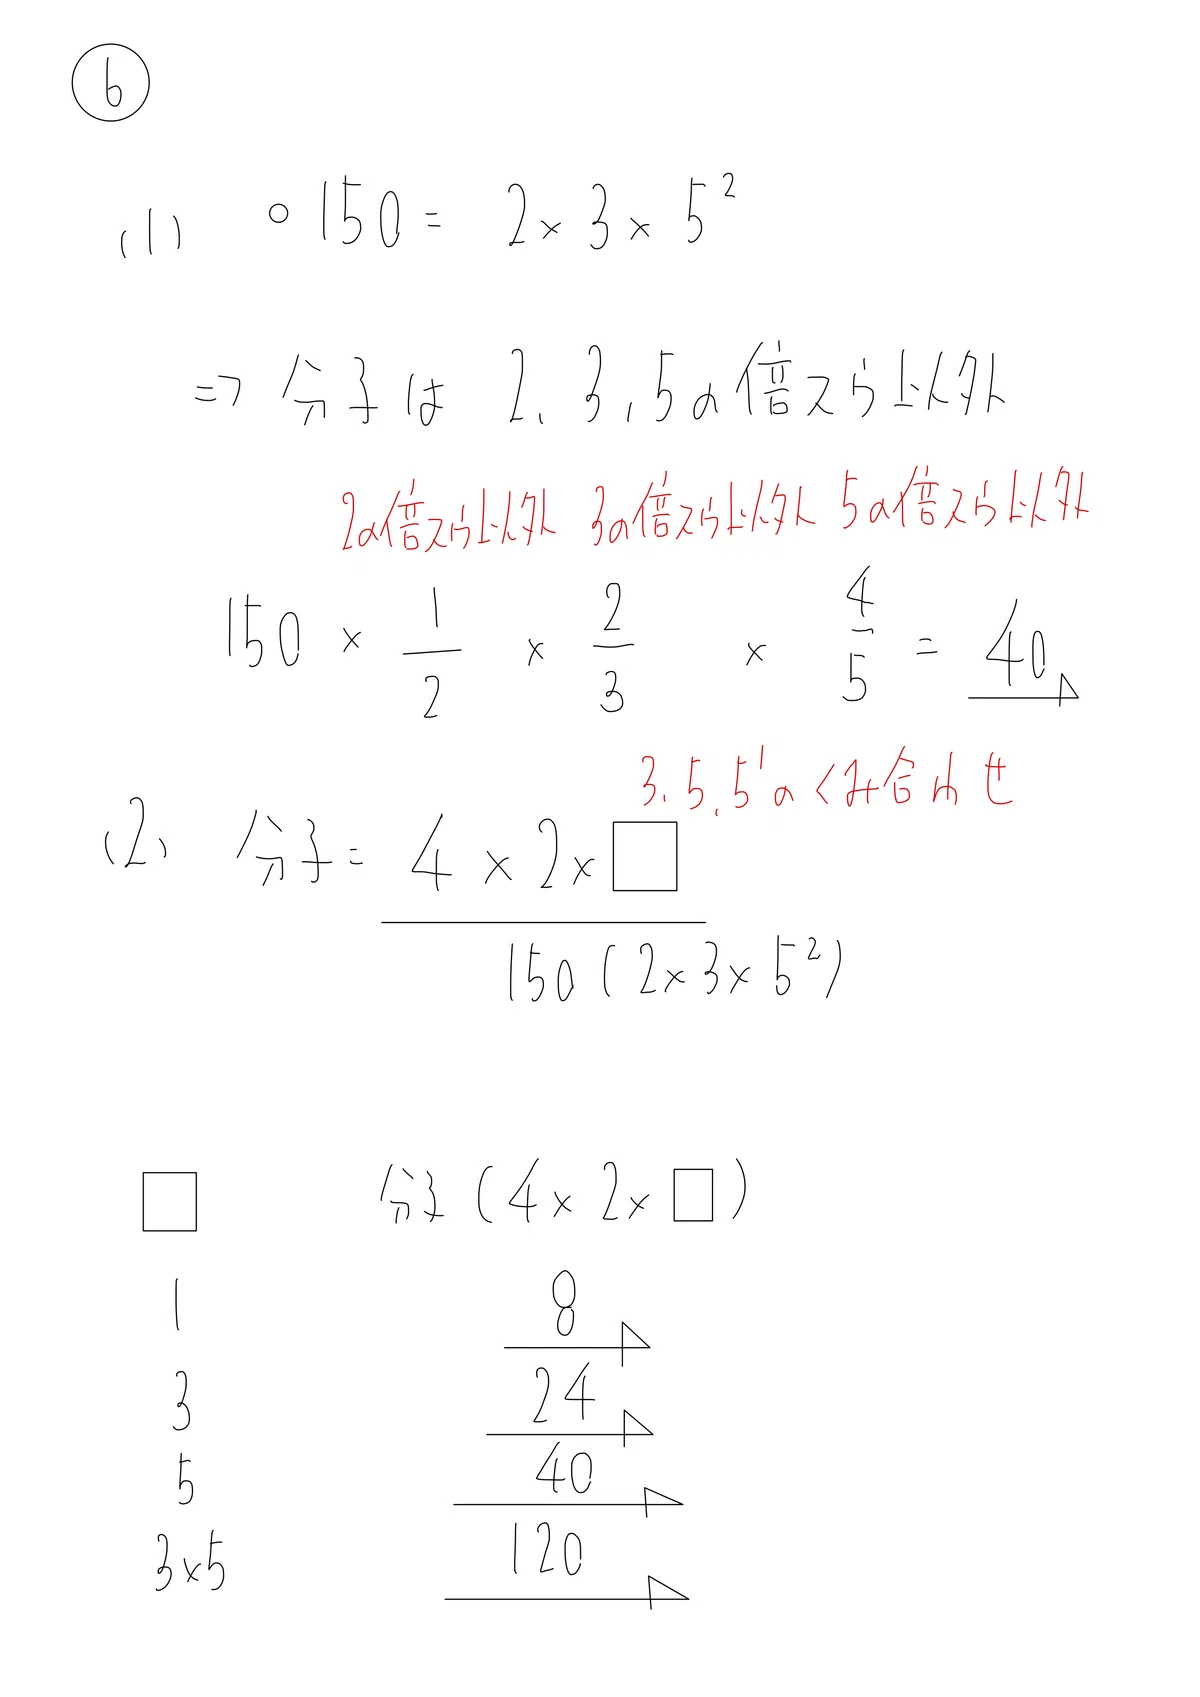 ⑥
(1) ○ 150 = 2 × 3 × 5²
⇒ 分子は 2、3、5の倍スウ以外
2の倍スウ以外 3の倍スウ以外 5の倍スウ以外
150 × 1/2 × 2/3 × 4/5 = 40
3、5、5'のくみ合わせ
(2) 分子 = 4 × 2 × □
150 (2×3×5²)
□ 分子 (4× 2× □)
1 8
3 24
5 40
3×5 120